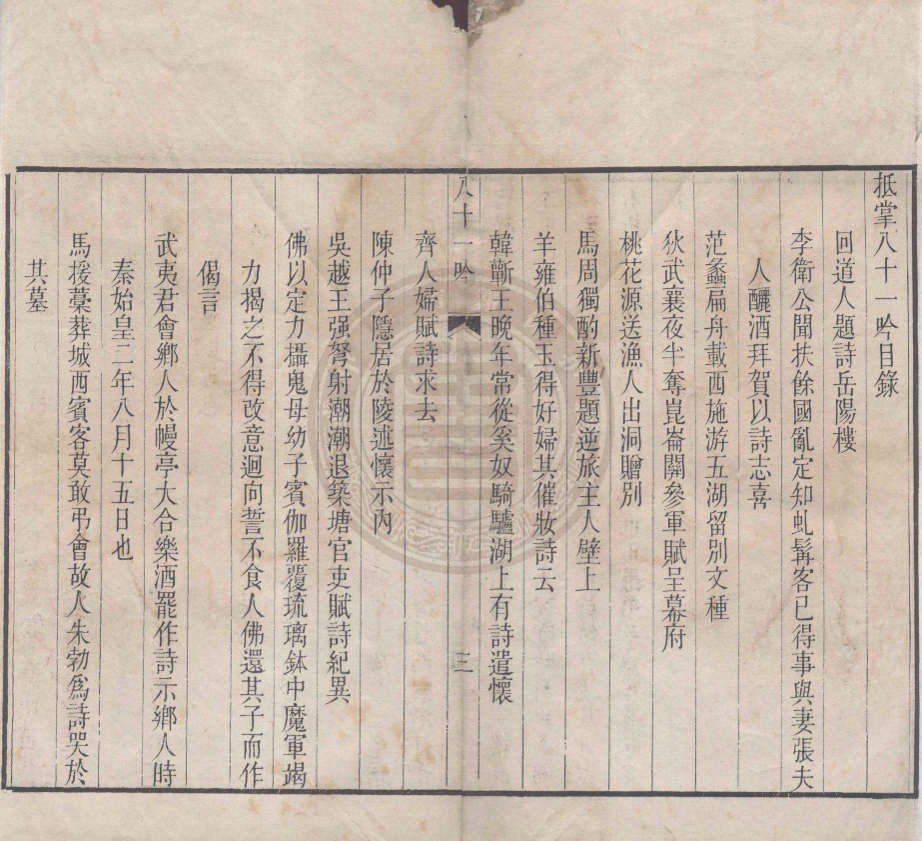 抵掌八十一吟目錄
回道人題詩岳陽樓
李衛公聞扶餘國亂定知虬髯客已得事與妻張夫
人釃酒拜賀以詩志喜
范蠡扁舟載西施游五湖留別文種
狄武襄夜半奪崑崙關參軍賦呈幕府
桃花源送漁人出洞贈別
馬周獨酌新豐題逆旅主人壁上
羊雍伯種玉得好婦其催妝詩云
韓蘄王晚年常從奚奴騎驢湖上有詩遣懷
八十一吟 三
齊人婦賦詩求去
陳仲子隱居於陵述懷示內
吳越王强弩射潮潮退築塘官吏賦詩紀異
佛以定力攝鬼母幼子賓伽羅覆琉璃鉢中魔軍竭
力揭之不得改意迴向誓不食人佛還其子而作
偈言
武夷君會鄉人於幔亭大合樂酒罷作詩示鄉人時
秦始皇二年八月十五日也
馬援藁葬城西賓客莫敢弔會故人朱勃爲詩哭於
其墓